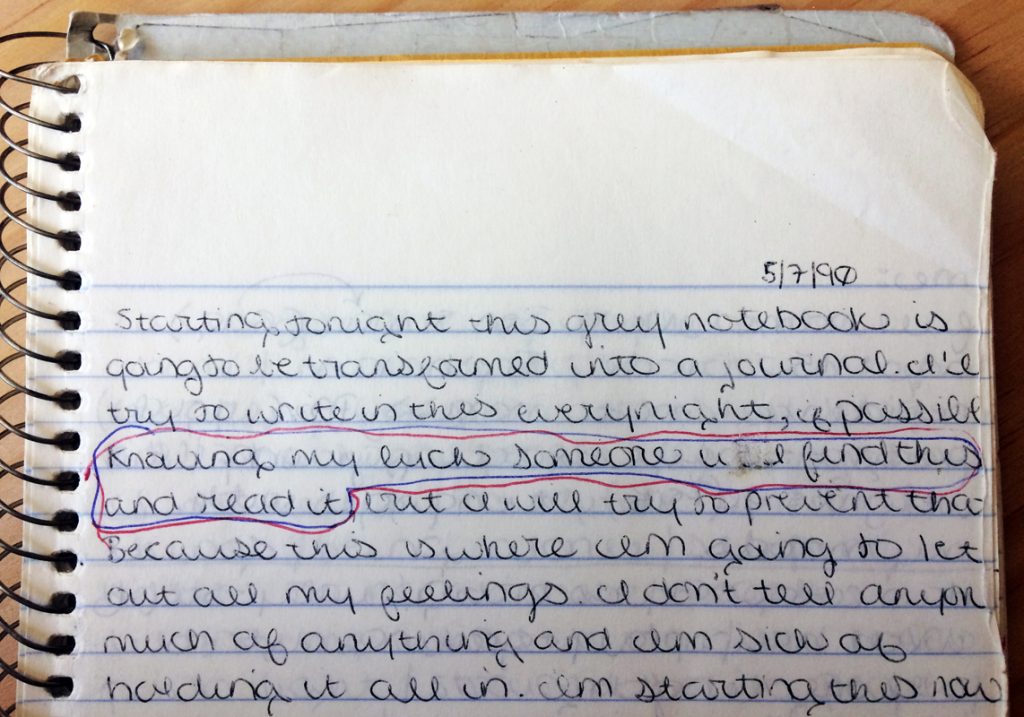 5/7/90
Starting tonight this grey notebook is
going to be transformed into a journal. I'll
try to write in this everynight, if possibl
Knowing my luck someone will find this
and read it, but I will try to prevent tha
Because this is where I'm going to let
out all my feelings. I don't tell anyon
much of anything and I'm sick of
holding it all in. I'm starting this now